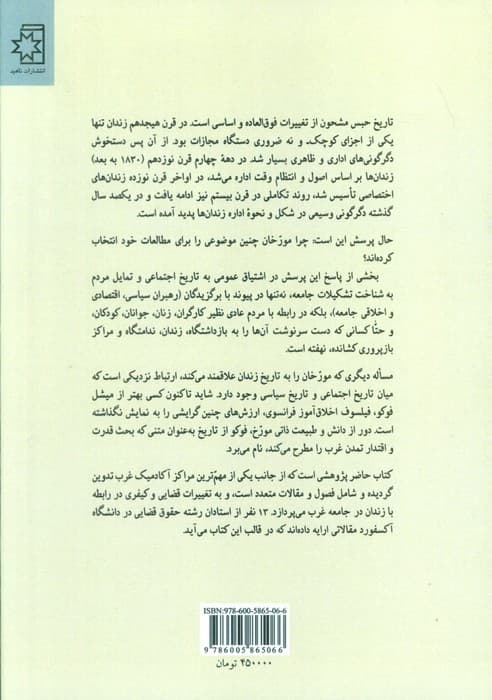 انتشارات ناهید
تاریخ حبس مشحون از تغییرات فوق‌العاده و اساسی است. در قرن هیجدهم زندان تنها
یکی از اجزای کوچک، و نه ضروری دستگاه مجازات بود. از آن پس دستخوش
دگرگونی‌های اداری و ظاهری بسیار شد. در دههٔ چهارم قرن نوزدهم (۱۸۳۰ به بعد)
زندان‌ها بر اساس اصول و انتظام وقت اداره می‌شد، در اواخر قرن نوزده زندان‌های
اختصاصی تأسیس شد، روند تکاملی در قرن بیستم نیز ادامه یافت و در یکصد سال
گذشته دگرگونی وسیعی در شکل و نحوهٔ اداره زندان‌ها پدید آمده است.
حال پرسش این است: چرا مورّخان چنین موضوعی را برای مطالعات خود انتخاب
کرده‌اند؟
بخشی از پاسخ این پرسش در اشتیاق عمومی به تاریخ اجتماعی و تمایل مردم
به شناخت تشکیلات جامعه، نه‌تنها در پیوند با برگزیدگان (رهبران سیاسی، اقتصادی
و اخلاقی جامعه)، بلکه در رابطه با مردم عادی نظیر کارگران، زنان، جوانان، کودکان،
و حتّا کسانی که دست سرنوشت آن‌ها را به بازداشتگاه، زندان، ندامتگاه و مراکز
بازپروری کشانده، نهفته است.
مسأله دیگری که مورّخان را به تاریخ زندان علاقمند می‌کند، ارتباط نزدیکی است که
میان تاریخ اجتماعی و تاریخ سیاسی وجود دارد. شاید تاکنون کسی بهتر از میشل
فوکو، فیلسوف اخلاق‌آموز فرانسوی، ارزش‌های چنین گرایشی را به نمایش نگذاشته
است. دور از دانش و طبیعت ذاتی مورّخ، فوکو از تاریخ به‌عنوان متنی که بحث قدرت
و اقتدار تمدن غرب را مطرح می‌کند، نام می‌برد.
کتاب حاضر پژوهشی است که از جانب یکی از مهمّ‌ترین مراکز آکادمیک غرب تدوین
گردیده و شامل فصول و مقالات متعدد است، و به تغییرات قضایی و کیفری در رابطه
با زندان در جامعه غرب می‌پردازد. ۱۳ نفر از استادان رشته حقوق قضایی در دانشگاه
آکسفورد مقالاتی ارایه داده‌اند که در قالب این کتاب می‌آید.
ISBN: 978-600-5865-06-6
9 786005 865066
۴۵۰۰۰۰ تومان